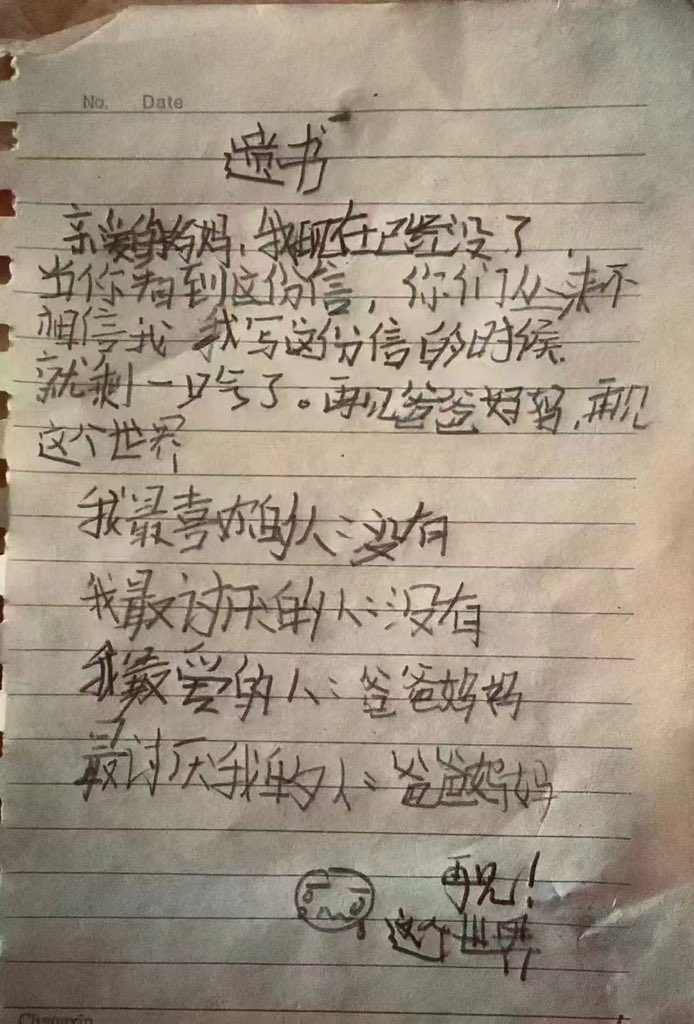 No. Date
遗书
亲爱的妈妈，我现在已经没了，
当你看到这份信，你们从来不
相信我 我写这份信的时候.
就剩一口气了。再见爸爸妈妈，再见
这个世界
我最喜欢的人：没有
我最讨厌的人：没有
我最爱的人：爸爸妈妈
最讨厌我的人：爸爸妈妈
再见！
这个世界！